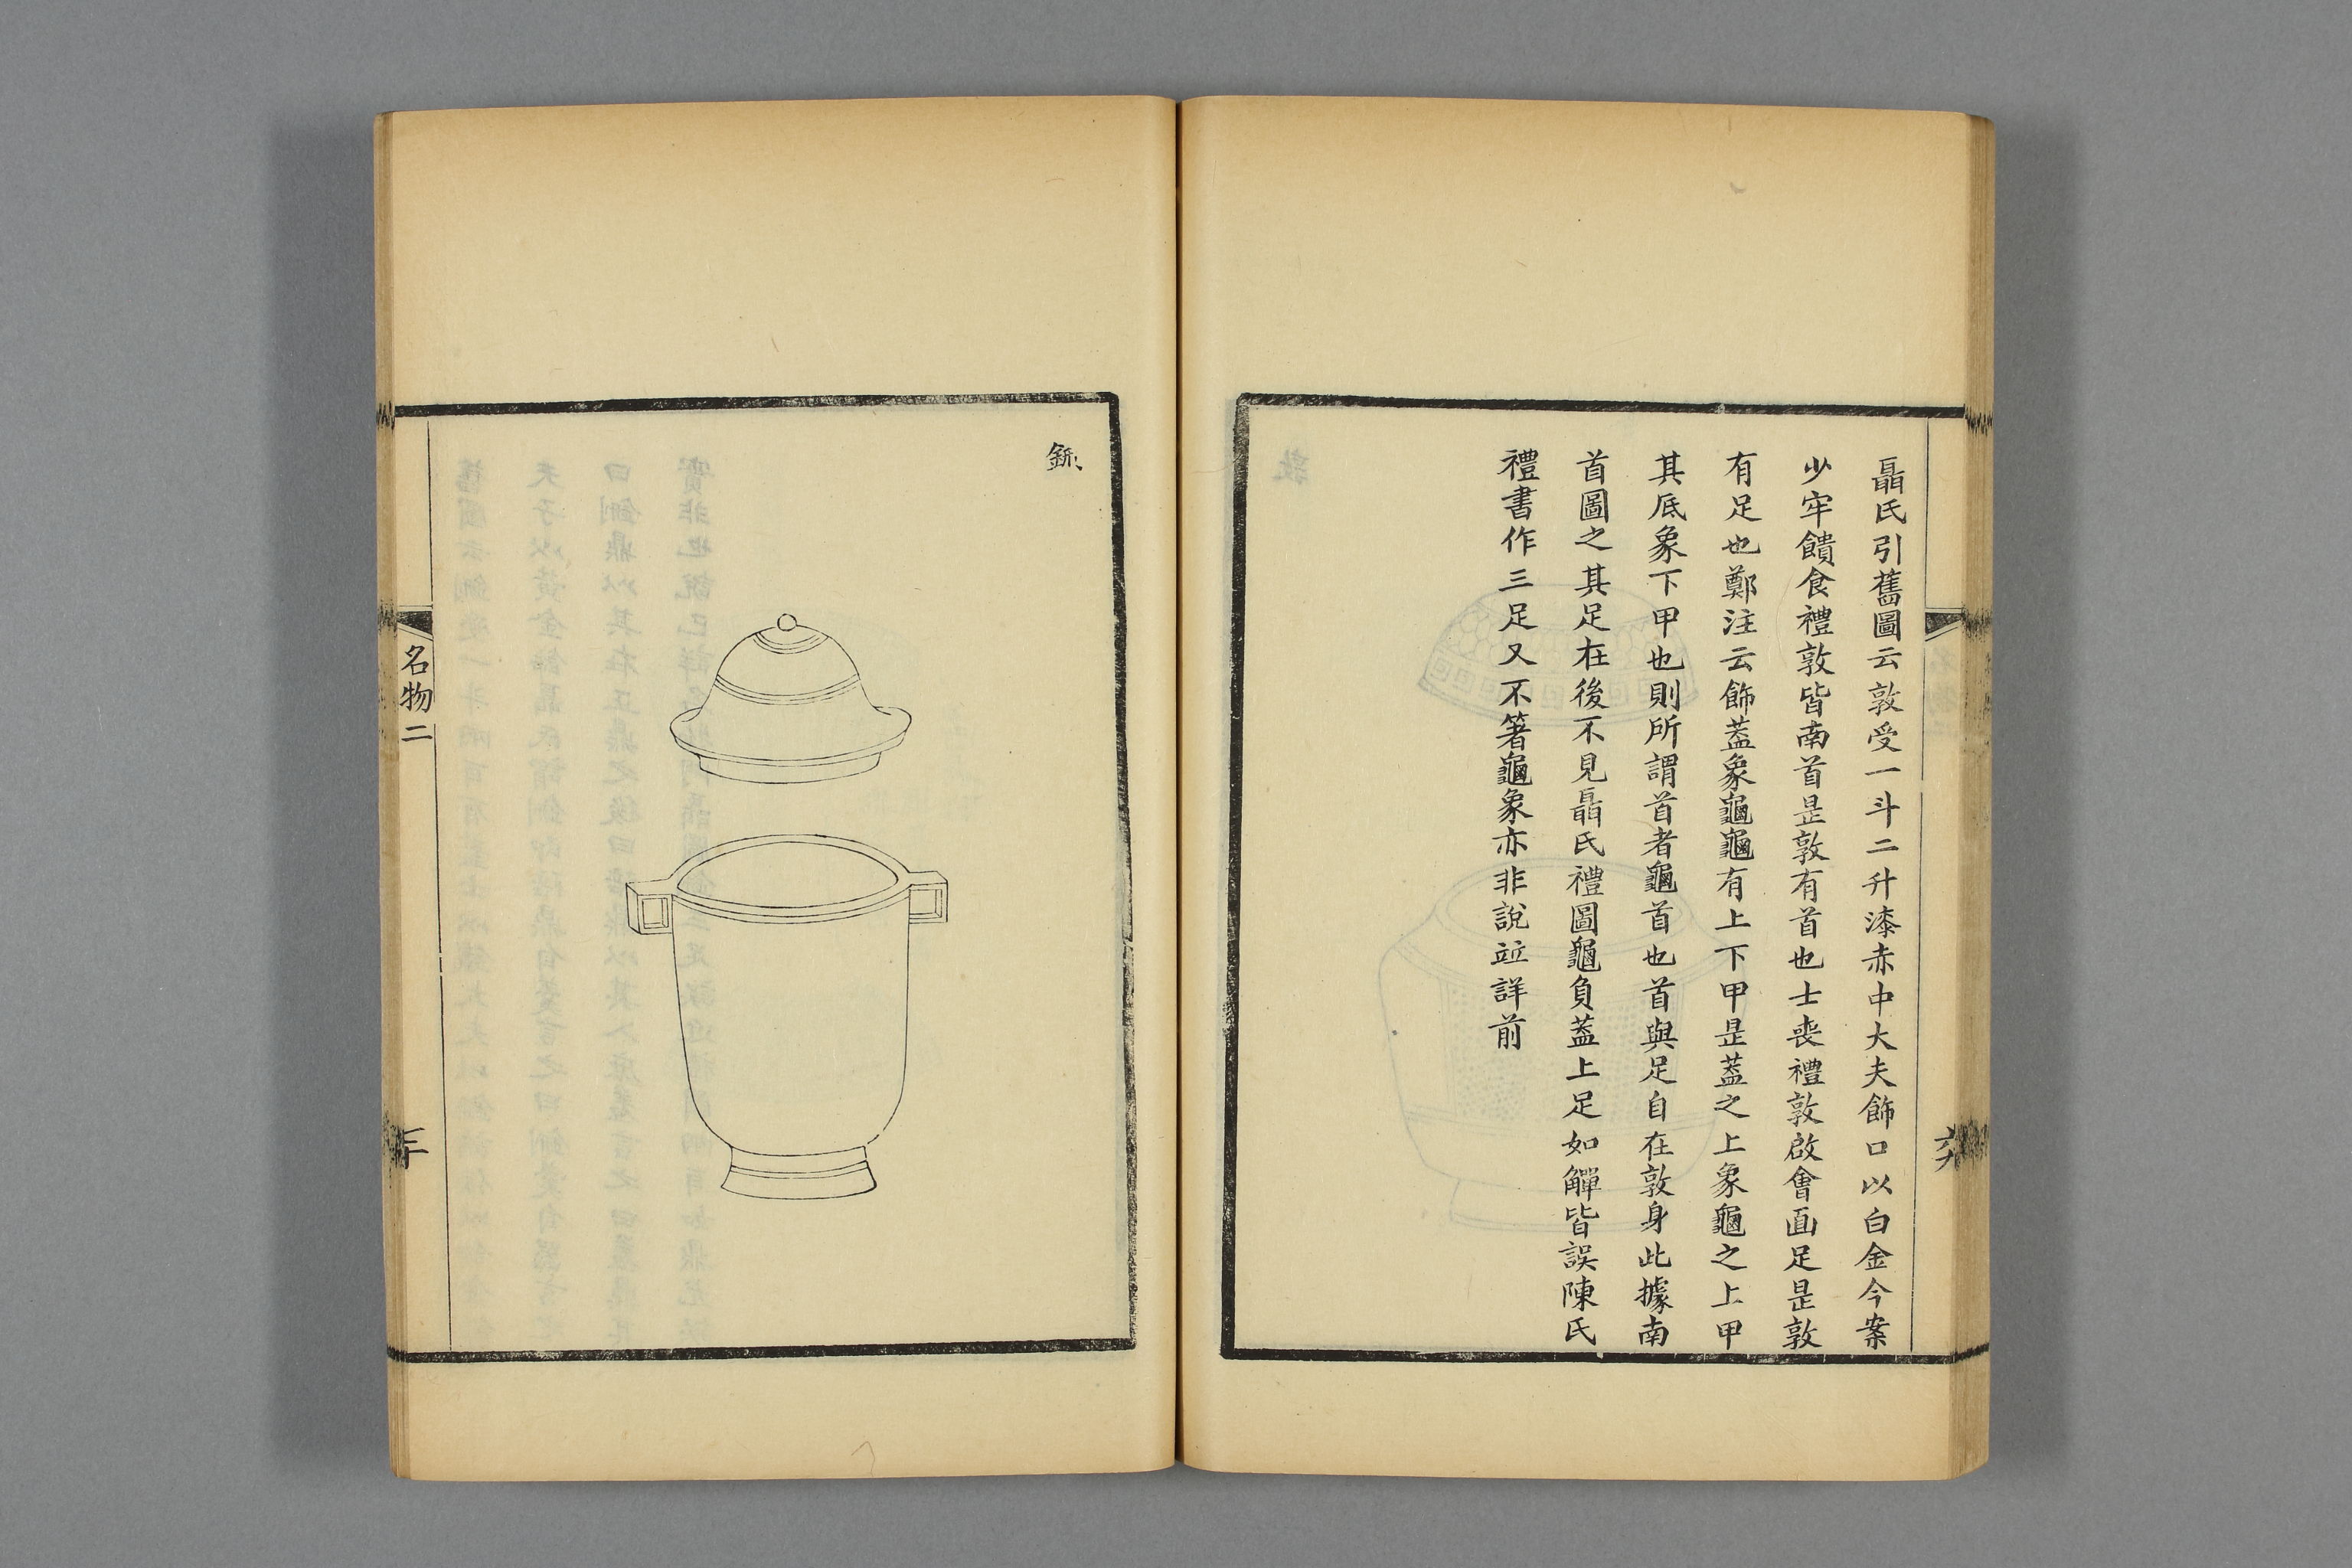 聶氏引舊圖云敦受一斗二升漆赤中大夫飾口以白金今案
少牢饋食禮敦皆南首是敦有首也士喪禮敦啟會面足是敦
有足也鄭注云飾蓋象龜龜有上下甲是蓋之上象龜之上甲
其底象下甲也則所謂首者龜首也首與足自在敦身此據南
首圖之其足在後不見聶氏禮圖龜負蓋上足如觶皆誤陳氏
禮書作三足又不箸龜象亦非說竝詳前
鉶
名物二